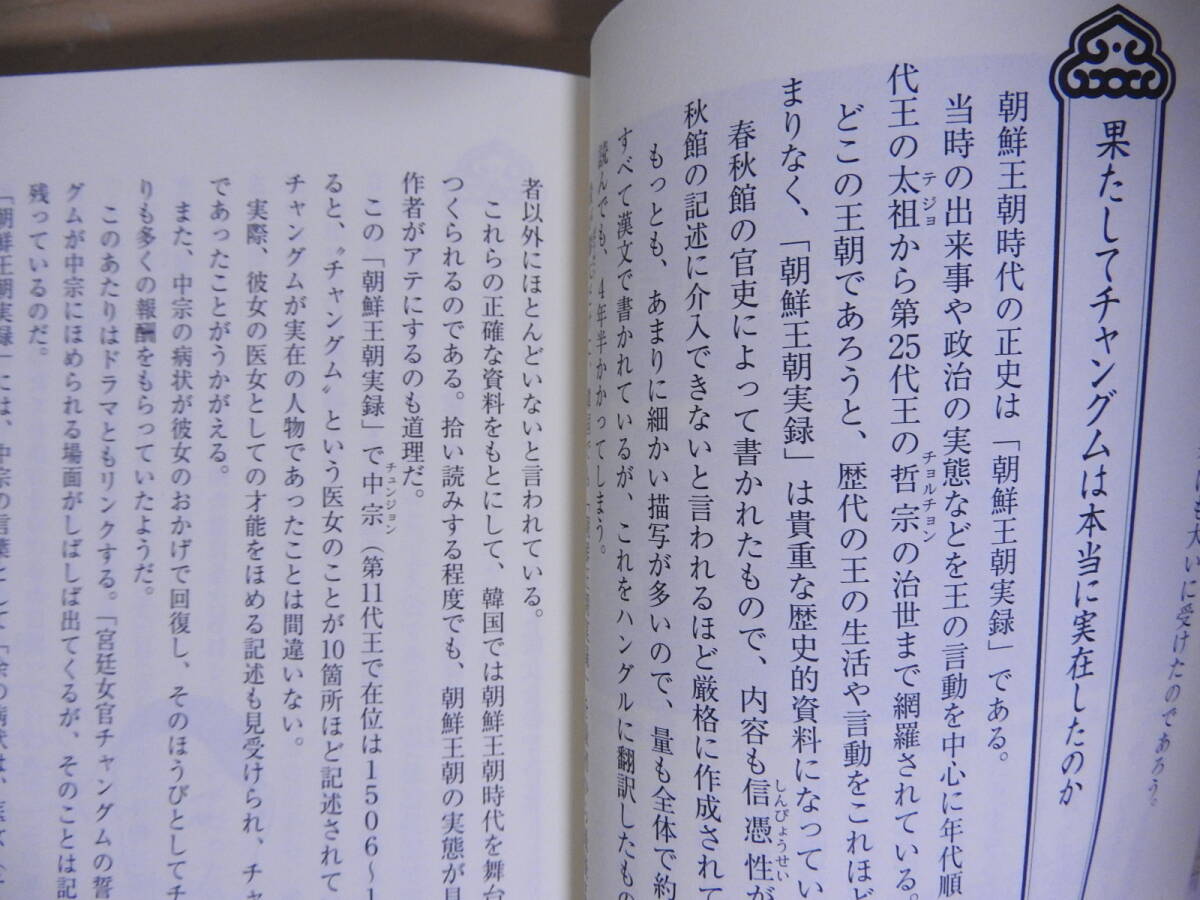 いに受けたのであろう。
果たしてチャングムは本当に実在したのか
朝鮮王朝時代の正史は「朝鮮王朝実録」である。
当時の出来事や政治の実態などを王の言動を中心に年代順
代王の太祖から第25代王の哲宗の治世まで網羅されている。
テジョ
チョルチョン
どこの王朝であろうと、歴代の王の生活や言動をこれほど
まりなく、「朝鮮王朝実録」は貴重な歴史的資料になってい
春秋館の官吏によって書かれたもので、内容も信憑性が
しんぴょうせい
秋館の記述に介入できないと言われるほど厳格に作成されて
もっとも、あまりに細かい描写が多いので、量も全体で約
すべて漢文で書かれているが、これをハングルに翻訳したもの
読んでも、4年半かかってしまう。
者以外にほとんどいないと言われている。
これらの正確な資料をもとにして、韓国では朝鮮王朝時代を舞台
つくられるのである。拾い読みする程度でも、朝鮮王朝の実態が見
作者がアテにするのも道理だ。
この「朝鮮王朝実録」で中宗(第11代王で在位は1506〜1
チュンジョン
ると、〝チャングム〟という医女のことが10箇所ほど記述されて
チャングムが実在の人物であったことは間違いない。
実際、彼女の医女としての才能をほめる記述も見受けられ、チャ
であったことがうかがえる。
また、中宗の病状が彼女のおかげで回復し、そのほうびとしてチ
りも多くの報酬をもらっていたようだ。
このあたりはドラマともリンクする。「宮廷女官チャングムの誓
グムが中宗にほめられる場面がしばしば出てくるが、そのことは記
残っているのだ。
「朝鮮王朝実録」には、中宗の言葉として「余の病状は、医女